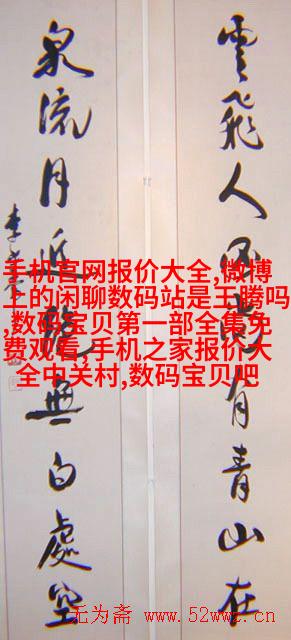 雲飛人有青山在
泉流月近無白處空
李
手机官网报价大全,微博
上的闲聊数码站是王腾吗
,数码宝贝第一部全集免
费观看,手机之家报价大
全中关村,数码宝贝吧
无为斋 www.52wwz.cn